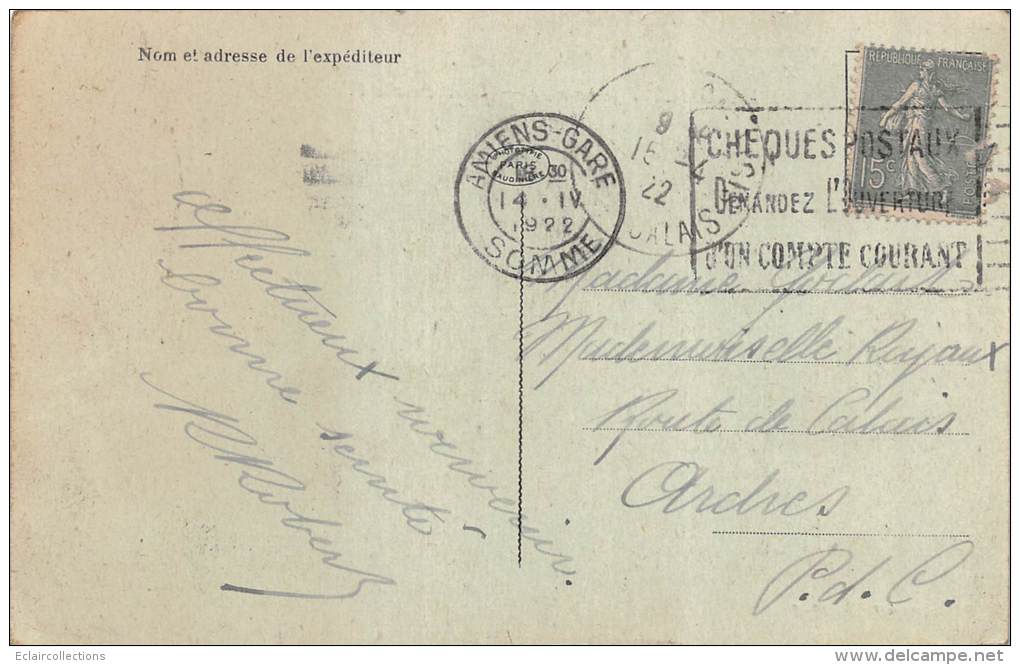 Nom et adresse de l'expéditeur
RÉPUBLIQUE FRANÇAISE
15c
POSTES
AMIENS-GARE
30
14 . IV
1922
SOMME
PHOTOTYPIE
PARIS
BAUDINIÈRE
15
22
CALAIS
CHÈQUES POSTAUX
DEMANDEZ L'OUVERTURE
D'UN COMPTE COURANT
Affectueux souvenir.
bonne santé
Robert
Madame
Mademoiselle Royaux
Route de Calais
Ardres
P. d. C.
Eclaircollections
www.delcampe.net